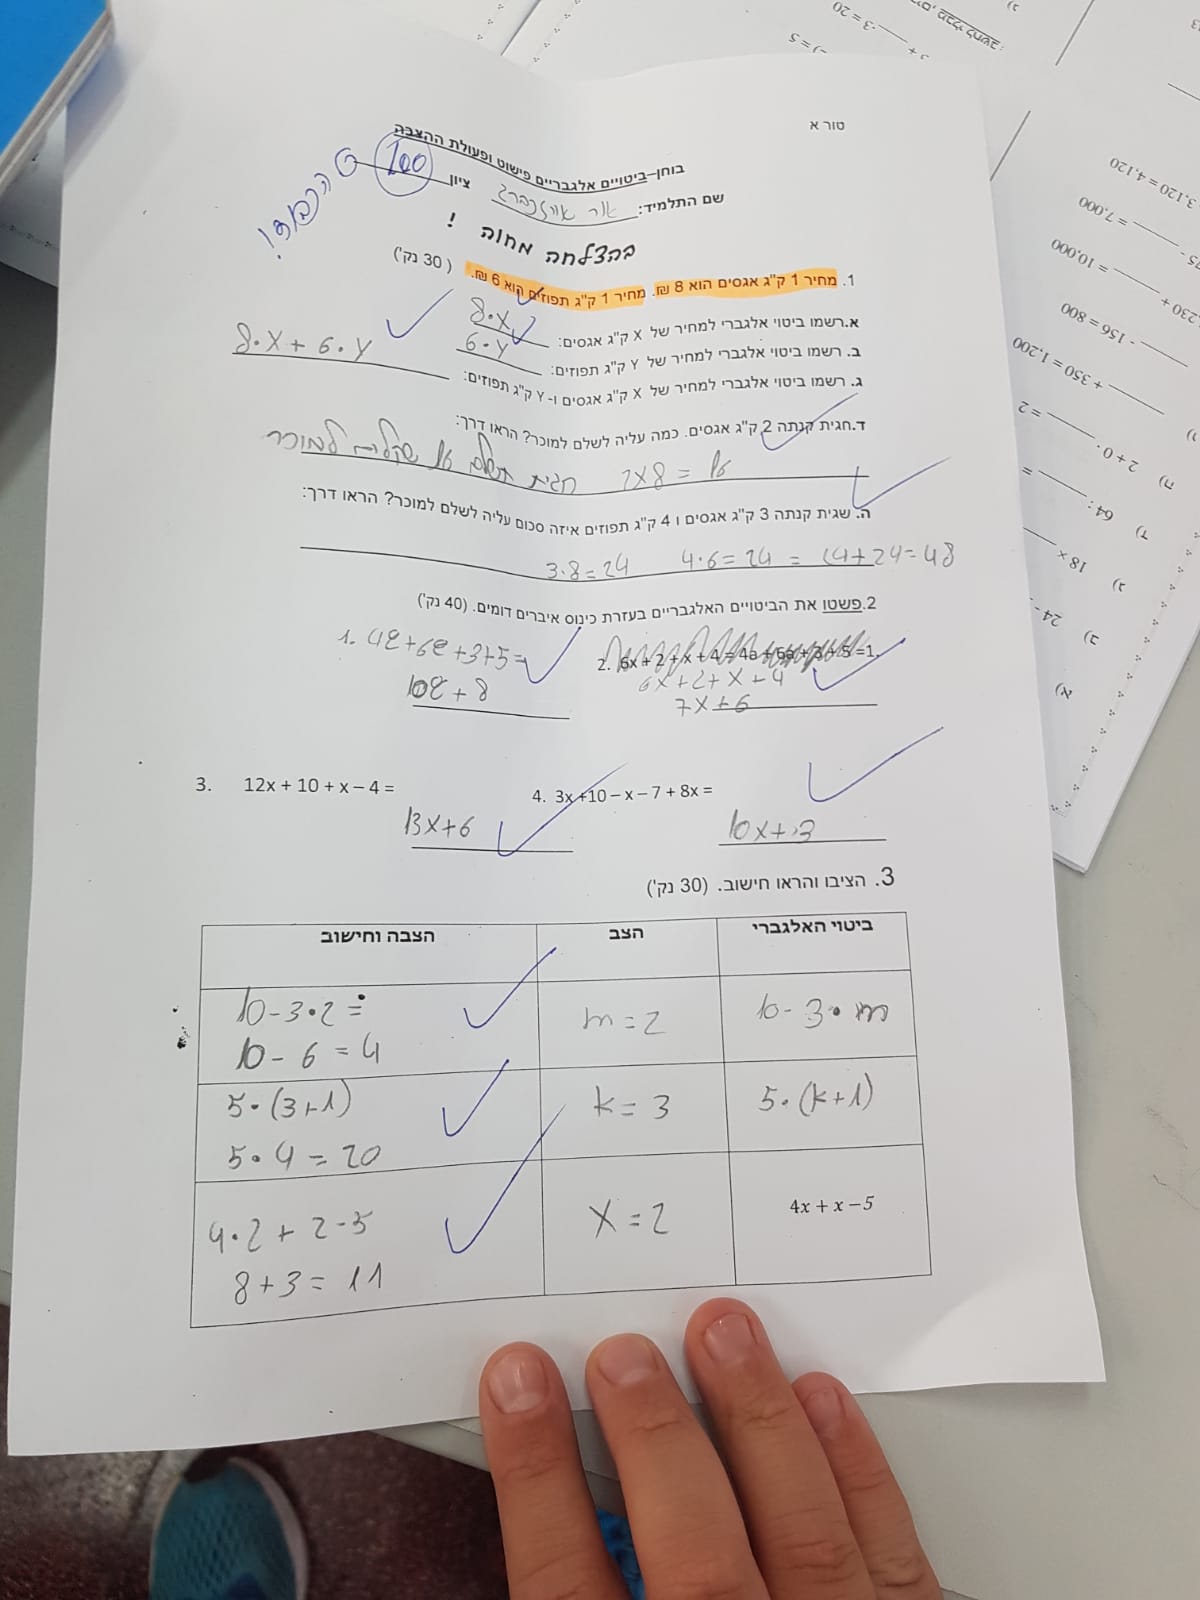 טור א
בוחן–ביטויים אלגבריים פישוט ופעולת ההצבה
שם התלמיד: ציון 100
בהצלחה מחוה !
1. מחיר 1 ק"ג אגסים הוא 8 ₪. מחיר 1 ק"ג תפוזים הוא 6 ₪. (30 נק')
א.רשמו ביטוי אלגברי למחיר של X ק"ג אגסים: 8·X
ב. רשמו ביטוי אלגברי למחיר של Y ק"ג תפוזים: 6·Y
ג. רשמו ביטוי אלגברי למחיר של X ק"ג אגסים ו-Y ק"ג תפוזים: 8·X + 6·Y
ד.חגית קנתה 2 ק"ג אגסים. כמה עליה לשלם למוכר? הראו דרך:
2X8 = 16 חגית תשלם 16 שקלים למוכר
ה. שגית קנתה 3 ק"ג אגסים ו 4 ק"ג תפוזים איזה סכום עליה לשלם למוכר? הראו דרך:
3·8=24 4·6=24 = 24+24=48
2.פשטו את הביטויים האלגבריים בעזרת כינוס איברים דומים. (40 נק')
1. 4a+6a+3+5=
10a+8
2. 6x + 2 + x + 4 = 4a + 6a + 3 + 5 =1.
6X+2+X+4
7X+6
3. 12x + 10 + x – 4 =
13X+6
4. 3x +10 – x – 7 + 8x =
10X+3
3. הציבו והראו חישוב. (30 נק')
ביטוי האלגברי הצב הצבה וחישוב
10-3·m m=2 10-3·2=
10-6=4
5·(k+1) k=3 5·(3+1)
5·4=20
4x + x – 5 X=2 4·2+2-5
8+3=11
3.120 = 4,120
= 7,000
= 10,000
- 156 = 800
+ 350 = 1,200
2 + 0 :
= 2
64 :
18 x
24 -